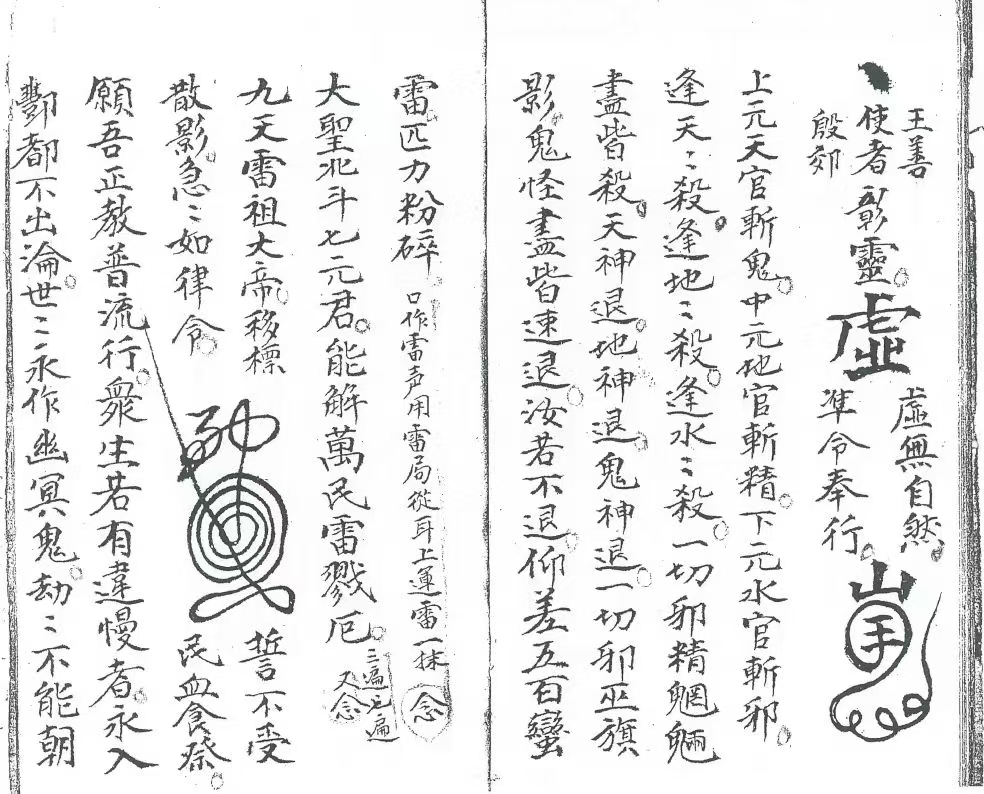 王善
使者彰靈。
殷郊
虛
虛無自然。
準令奉行。
上元天官斬鬼。中元地官斬精。下元水官斬邪。
逢天〻殺。逢地〻殺。逢水〻殺。一切邪精魍魎
盡皆殺。天神退。地神退。鬼神退。一切邪巫旗
影鬼怪盡皆速退。汝若不退。仰差五百蠻
雷匹力粉碎。口作雷声用雷局從耳上運雷一抹 念
大聖北斗七元君。能解萬民雷戮厄。三遍七遍又念
九天雷祖大帝。移標
誓不受
散影。急〻如律令。
民血食祭。
願吾正教普流行。衆生若有違慢者。永入
酆都不出淪世〻永作幽冥鬼。劫〻不能朝